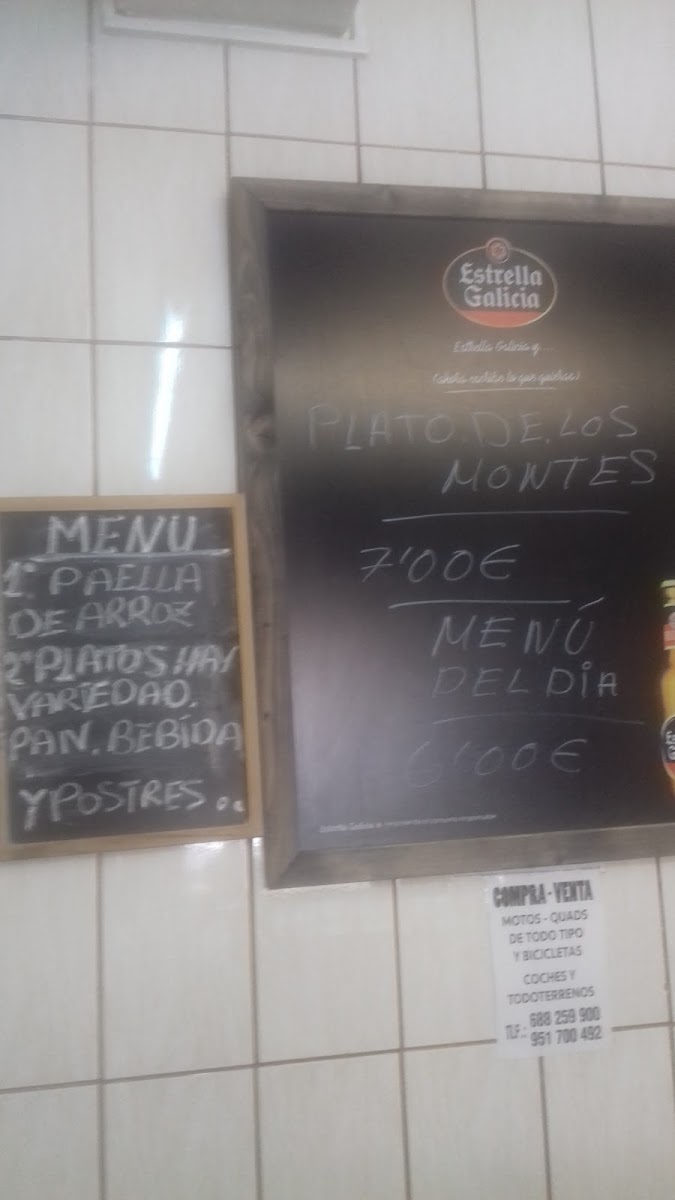 MENU
1º PAELLA
DE ARROZ
2º PLATOS HAY
VARIEDAD.
PAN. BEBIDA
Y POSTRES..
Estrella
Galicia
Estrella Galicia y...
PLATO.DE.LOS
MONTES
7'00€
MENÚ
DEL DÍA
6'00€
Estrella Galicia
COMPRA-VENTA
MOTOS - QUADS
DE TODO TIPO
Y BICICLETAS
COCHES Y
TODOTERRENOS
TLF.: 688 259 900
951 700 492